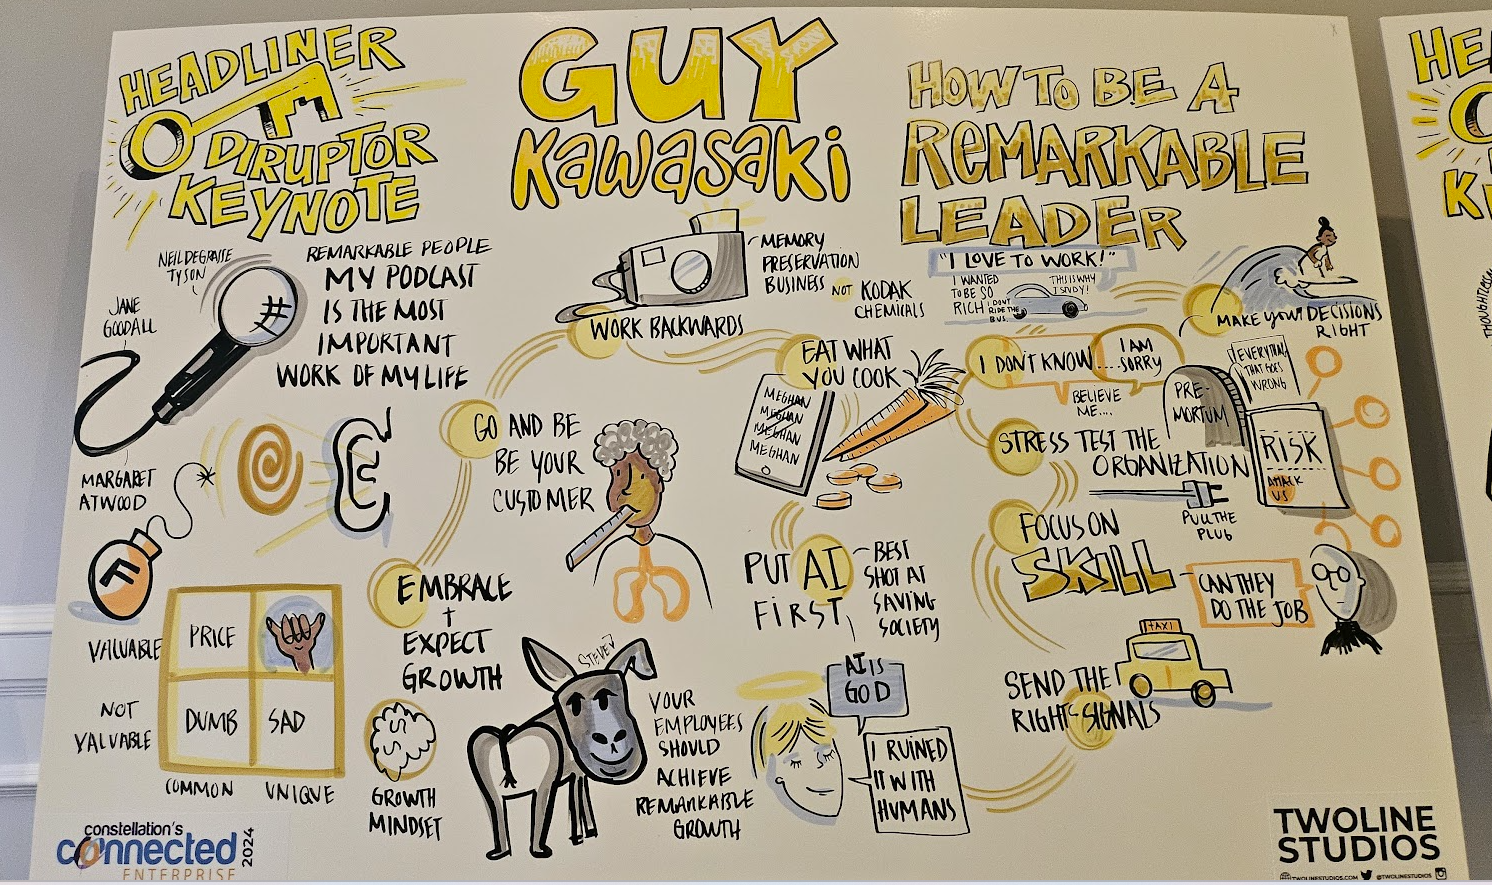 HEADLINER
DIRUPTOR
KEYNOTE
GUY
KAWASAKI
HOW TO BE A
REMARKABLE
LEADER
NEIL DEGRASSE
TYSON
JANE
GOODALL
MARGARET
ATWOOD
REMARKABLE PEOPLE
MY PODCAST
IS THE MOST
IMPORTANT
WORK OF MY LIFE
F
VALUABLE
NOT
VALUABLE
PRICE
DUMB
SAD
COMMON
UNIQUE
EMBRACE
+
EXPECT
GROWTH
GROWTH
MINDSET
STEVE?
YOUR
EMPLOYEES
SHOULD
ACHIEVE
REMARKABLE
GROWTH
GO AND BE
BE YOUR
CUSTOMER
WORK BACKWARDS
MEMORY
PRESERVATION
BUSINESS
NOT
KODAK
CHEMICALS
EAT WHAT
YOU COOK
MEGHAN
MEGHAN
MEGHAN
MEGHAN
PUT AI
FIRST
BEST
SHOT AT
SAVING
SOCIETY
AI IS
GOD
I RUINED
IT WITH
HUMANS
"I LOVE TO WORK!"
I WANTED
TO BE SO
RICH I DON'T
RIDE THE
BUS
THIS IS WHY
I STUDY!
MAKE YOUR DECISIONS
RIGHT
I DON'T KNOW....
I AM
SORRY
BELIEVE
ME....
PRE-
MORTUM
EVERYTHING
THAT GOES
WRONG
STRESS TEST THE
ORGANIZATION
RISK
ATTACK
US
PULL THE
PLUG
FOCUS ON
SKILL
CAN THEY
DO THE JOB
TAXI
SEND THE
RIGHT SIGNALS
constellation's
connected
ENTERPRISE
2024
TWOLINE
STUDIOS
TWOLINESTUDIOS.COM
@TWOLINESTUDIOS
HE
K